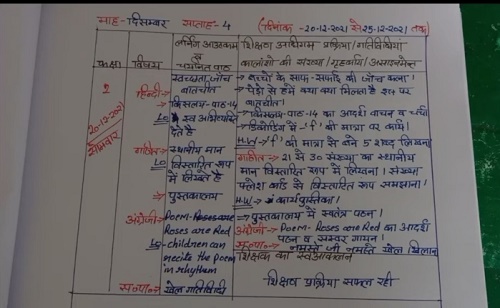 माह-दिसम्बर सप्ताह-4 (दिनांक -20-12-2021 से 25-12-2021 तक)
कक्षा
विषय
लर्निंग आउटकम
व
चयनित पाठ
शिक्षण अधिगम प्रक्रिया/गतिविधियां
कालांशों की संख्या/गृहकार्य/असाइनमेन्ट
1
20-12-2021
सोमवार
स्वच्छता जाँच
→ बच्चों के साफ-सफाई की जाँच करना।
बातचीत
→ पेड़ों से हमें क्या क्या मिलता है इस पर
बातचीत।
हिन्दी→
किसलय-पाठ-14
→ किसलय-पाठ-14 का आदर्श वाचन व चर्चा
LO स्व अभिव्यक्ति
देते हैं
की मात्रा पर कार्य।
H.W→ की मात्रा से बने 5 शब्द लिखना
गणित→
स्थानीय मान
गणित→ 21 से 30 संख्या का स्थानीय
LO विस्तारित रूप
में लिखते है
मान विस्तारित रूप में लिखना। संख्या
फ्लैश कार्ड से विस्तारित रूप समझाना।
H.W→ कार्यपुस्तिका।
→ पुस्तकालय
→ पुस्तकालय में स्वतंत्र पठन।
अंग्रेजी→
Poem-Roses are
Roses are Red
अंग्रेजी→ Poem- Roses are Red का आदर्श
पठन व सस्वर गायन।
LO- children can
recite the poem
in rhythm
नमस्ते जी नमस्ते खेल खिलाना
शिक्षक का स्वआकलन
खेल गतिविधी
शिक्षण प्रक्रिया सफल रही